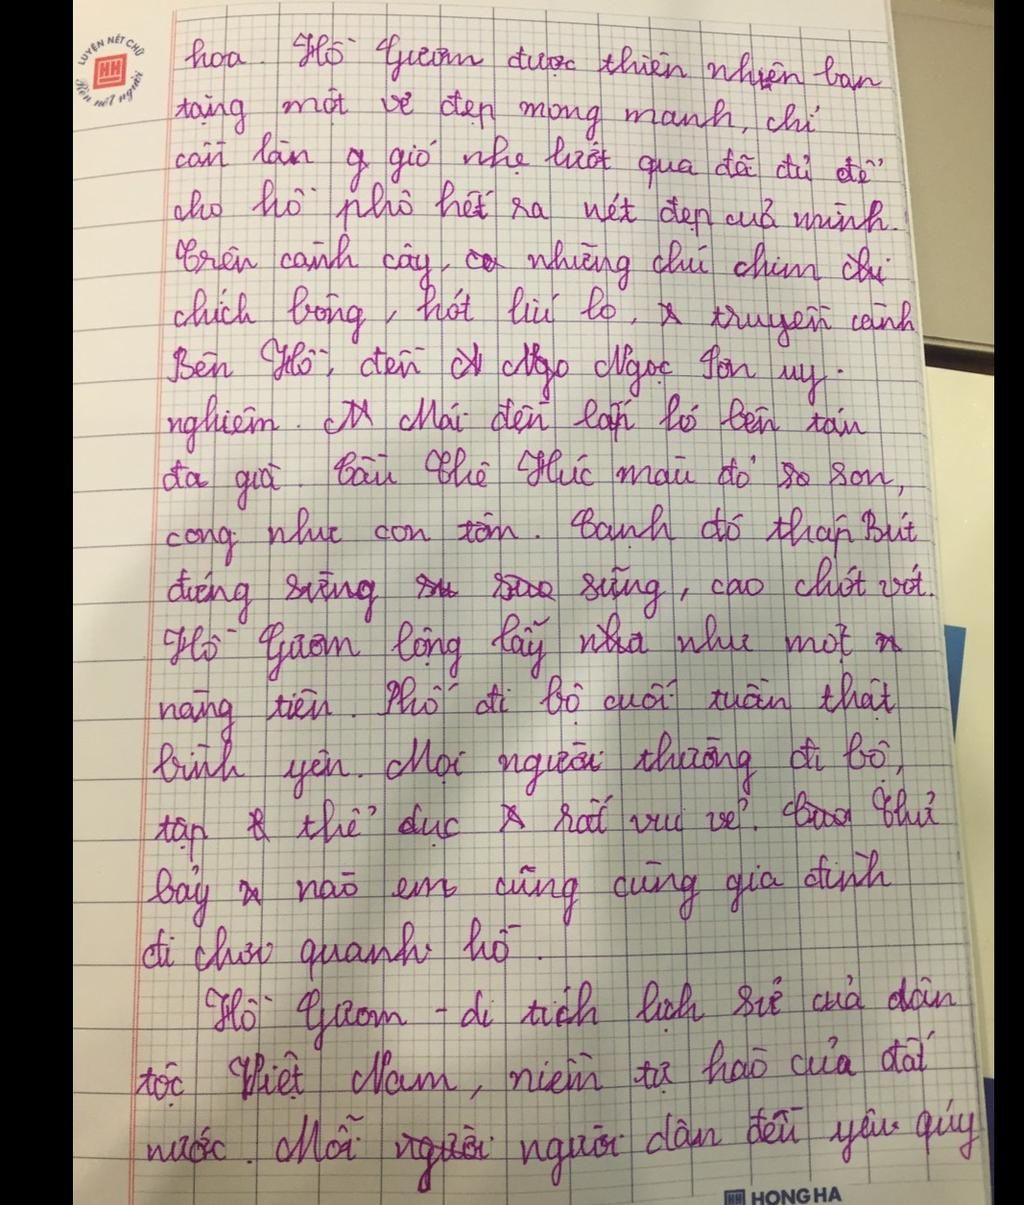 LUYỆN NẾT CHỮ
HH
Rèn nết người
hoa. Hồ Gươm được thiên nhiên ban
tặng một vẻ đẹp mong manh, chỉ
cần làn gió nhẹ lướt qua đã đủ để
cho hồ phô hết ra nét đẹp của mình.
Trên cành cây, những chú chim
chích bông, hót líu lo, truyền cành
Bên Hồ, đền Ngọc Sơn uy
nghiêm. Mái đền lấp ló bên tán
đa già. Cầu Thê Húc màu đỏ son,
cong như con tôm. Cạnh đó tháp Bút
đứng sừng sững, cao chót vót.
Hồ Gươm lộng lẫy như một
nàng tiên. Phố đi bộ cuối tuần thật
bình yên. Mọi người thường đi bộ,
tập thể dục rất vui vẻ. Thứ
bảy nào em cũng cùng gia đình
đi chơi quanh hồ.
Hồ Gươm - di tích lịch sử của dân
tộc Việt Nam, niềm tự hào của đất
nước. Mỗi người dân đều yêu quý
HH HONG HA